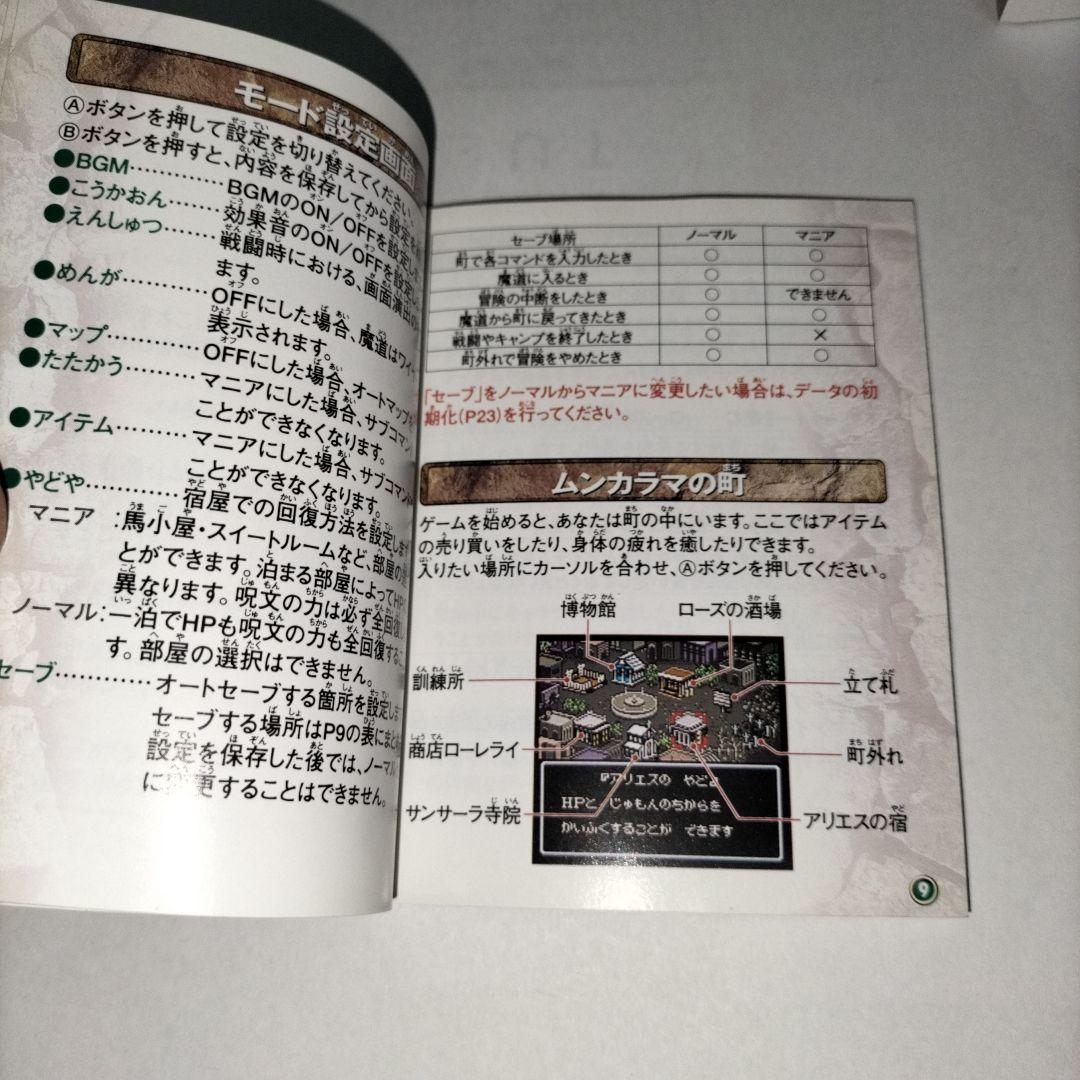 モード設定画面
Ⓐボタンを押して設定を切り替えてください。
Ⓑボタンを押すと、内容を保存してから設定を
●BGM…………BGMのON/OFFを設定し
●こうかおん……効果音のON/OFFを設定し
●えんしゅつ……戦闘時における、画面演出の
ます。
●めんが…………OFFにした場合、魔道はワイ
表示されます。
●マップ…………OFFにした場合、オートマップを
●たたかう………マニアにした場合、サブコマン
ことができなくなります。
●アイテム………マニアにした場合、サブコマン
ことができなくなります。
●やどや…………宿屋での回復方法を設定します
マニア:馬小屋・スイートルームなど、部屋の
とができます。泊まる部屋によってHP
異なります。呪文の力は必ず全回復し
ノーマル:一泊でHPも呪文の力も全回復するこ
す。部屋の選択はできません。
セーブ…………オートセーブする箇所を設定しま
セーブする場所はP9の表にまと
設定を保存した後では、ノーマル
に変更することはできません。
セーブ場所 ノーマル マニア
町で各コマンドを入力したとき ○ ○
魔道に入るとき ○ ○
冒険の中断をしたとき ○ できません
魔道から町に戻ってきたとき ○ ○
戦闘やキャンプを終了したとき ○ ×
町外れで冒険をやめたとき ○ ○
「セーブ」をノーマルからマニアに変更したい場合は、データの初
期化(P23)を行ってください。
ムンカラマの町
ゲームを始めると、あなたは町の中にいます。ここではアイテム
の売り買いをしたり、身体の疲れを癒したりできます。
入りたい場所にカーソルを合わせ、Ⓐボタンを押してください。
博物館 ローズの酒場
訓練所 立て札
商店ローレライ 町外れ
サンサーラ寺院 アリエスの宿
『アリエスの やど』
HPと じゅもんのちからを
かいふくすることが できます
9